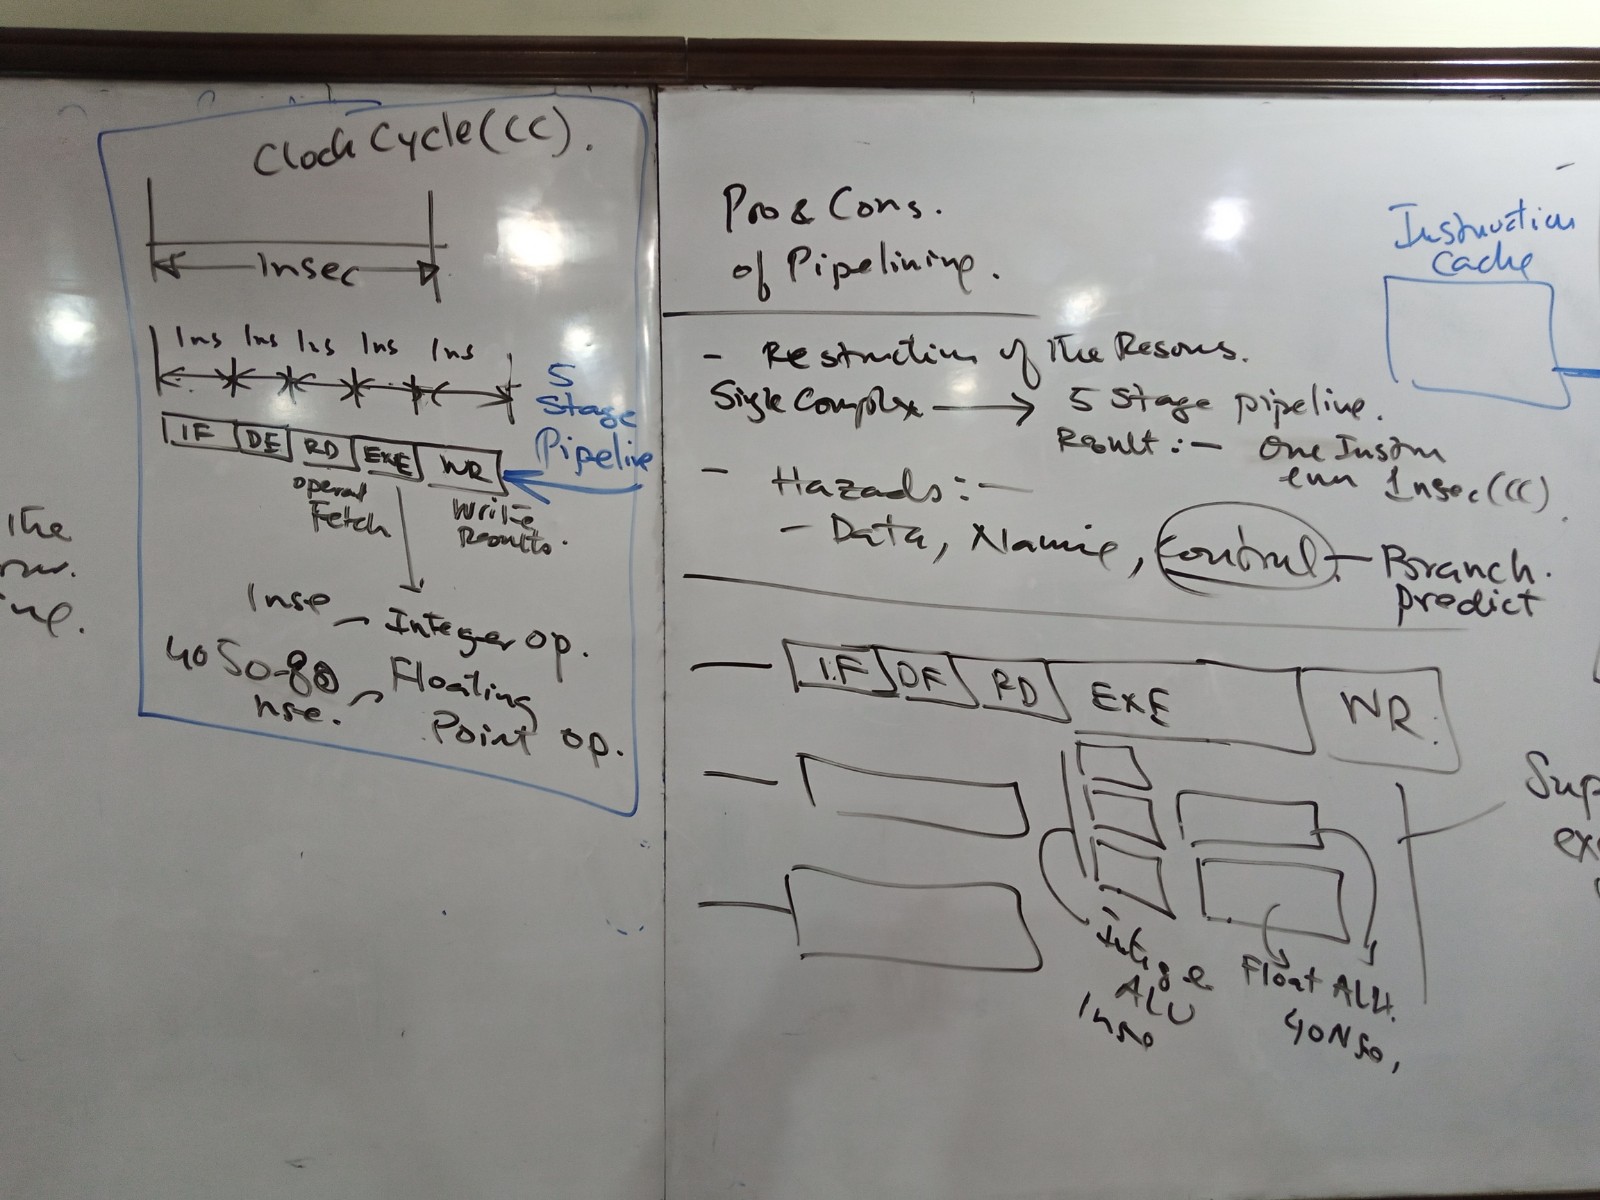 The
Clock Cycle (CC).
1nsec
1ns 1ns 1ns 1ns 1ns
5
Stage
Pipeline
IF DE RD EXE WR
operan
Fetch
Write
Results.
1nse
Integer op.
40 50-80
nse.
Floating
Point op.
Pro & Cons.
of Pipelining.
- Restruction of the Resous.
Sigle Complex → 5 Stage pipeline.
Result :- One Instrn
1nsec (CC)
- Hazads :-
- Data, Name, Control - Branch.
predict
I.F DE RD EXE WR.
ALU
1nso
Float ALU.
40Nso,
Instruction
Cache
Sup
exe